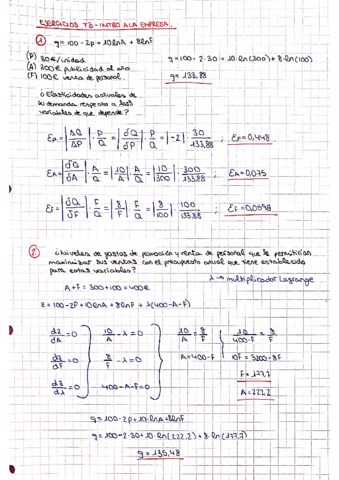 EJERCICIOS T3 - INTRO A LA EMPRESA.
① q = 100 - 2p + 10 ln A + 8 ln F
(P) 30€/unidad
(A) 300€ publicidad al año
(F) 100€ venta de personal.
q = 100 - 2·30 + 10·ln(300) + 8·ln(100)
q = 133,88
¿Elasticidades actuales de
su demanda respecto a las
variables de que depende?
Ep = |ΔQ/ΔP| · P/Q = |∂Q/∂P| · P/Q = |-2| · 30/133,88 ; Ep = 0,448
EA = |∂Q/∂A| · A/Q = |10/A| · A/Q = |10/300| · 300/133,88 ; EA = 0,075
EF = |∂Q/∂F| · F/Q = |8/F| · F/Q = |8/100| · 100/133,88 ; EF = 0,0598
② ¿Niveles de gastos de promoción y venta de personal que le permitirían
maximizar sus ventas con el presupuesto actual que tiene establecido
para estas variables?
λ → multiplicador Lagrange
A + F = 300 + 100 = 400€
Z = 100 - 2P + 10 ln A + 8 ln F + λ(400 - A - F)
dZ/dA = 0 10/A - λ = 0 10/A = 8/F 10/400-F = 8/F
dZ/dF = 0 8/F - λ = 0 A = 400 - F 10F = 3200 - 8F
F = 177,7
dZ/dλ = 0 400 - A - F = 0 A = 222,2
q = 100 - 2p + 10·ln A + 8 ln F
q = 100 - 2·30 + 10·ln(222,2) + 8·ln(177,7)
q = 135,48